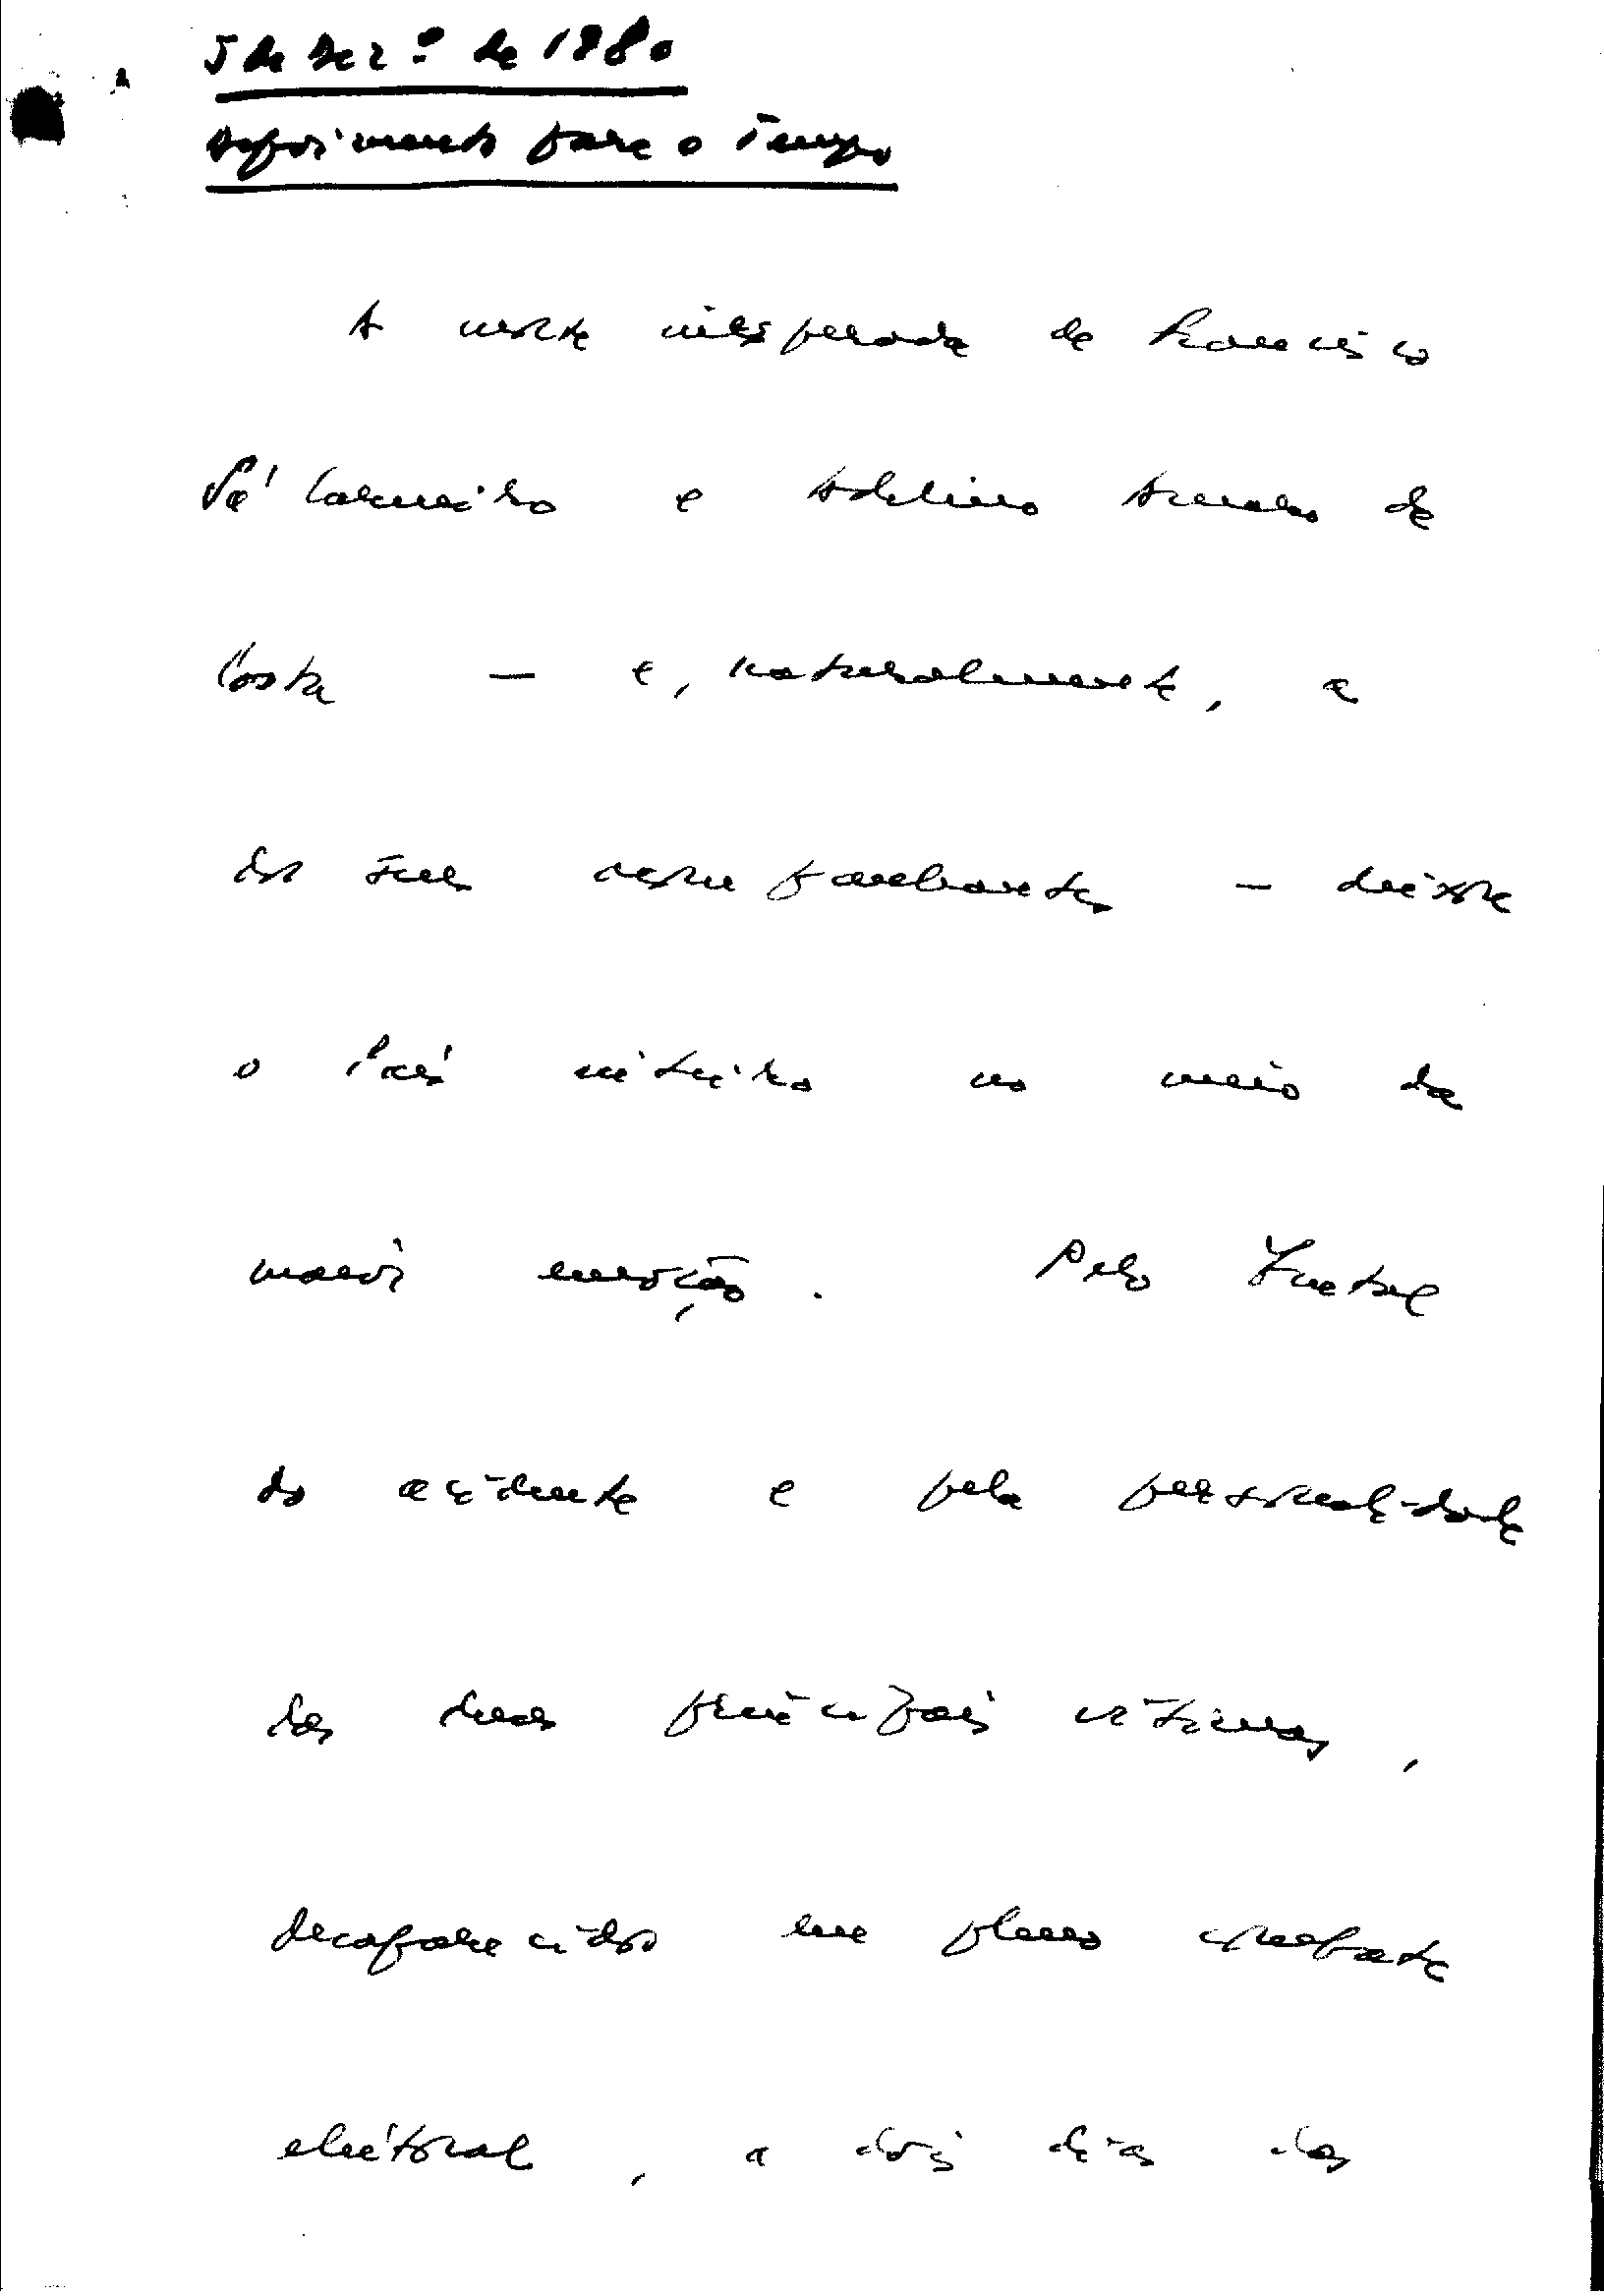 5 de Dez.º de 1980
Depoimento para o Tempo
A morte inesperada de Francisco
Sá Carneiro e Adelino Amaro da
Costa — e, naturalmente, a
dos seus acompanhantes — deixa
o País inteiro no meio da
maior emoção. Pelo
do acidente e pela personalidade
das duas principais vítimas,
desaparecidos em pleno combate
eleitoral, a dois dias das